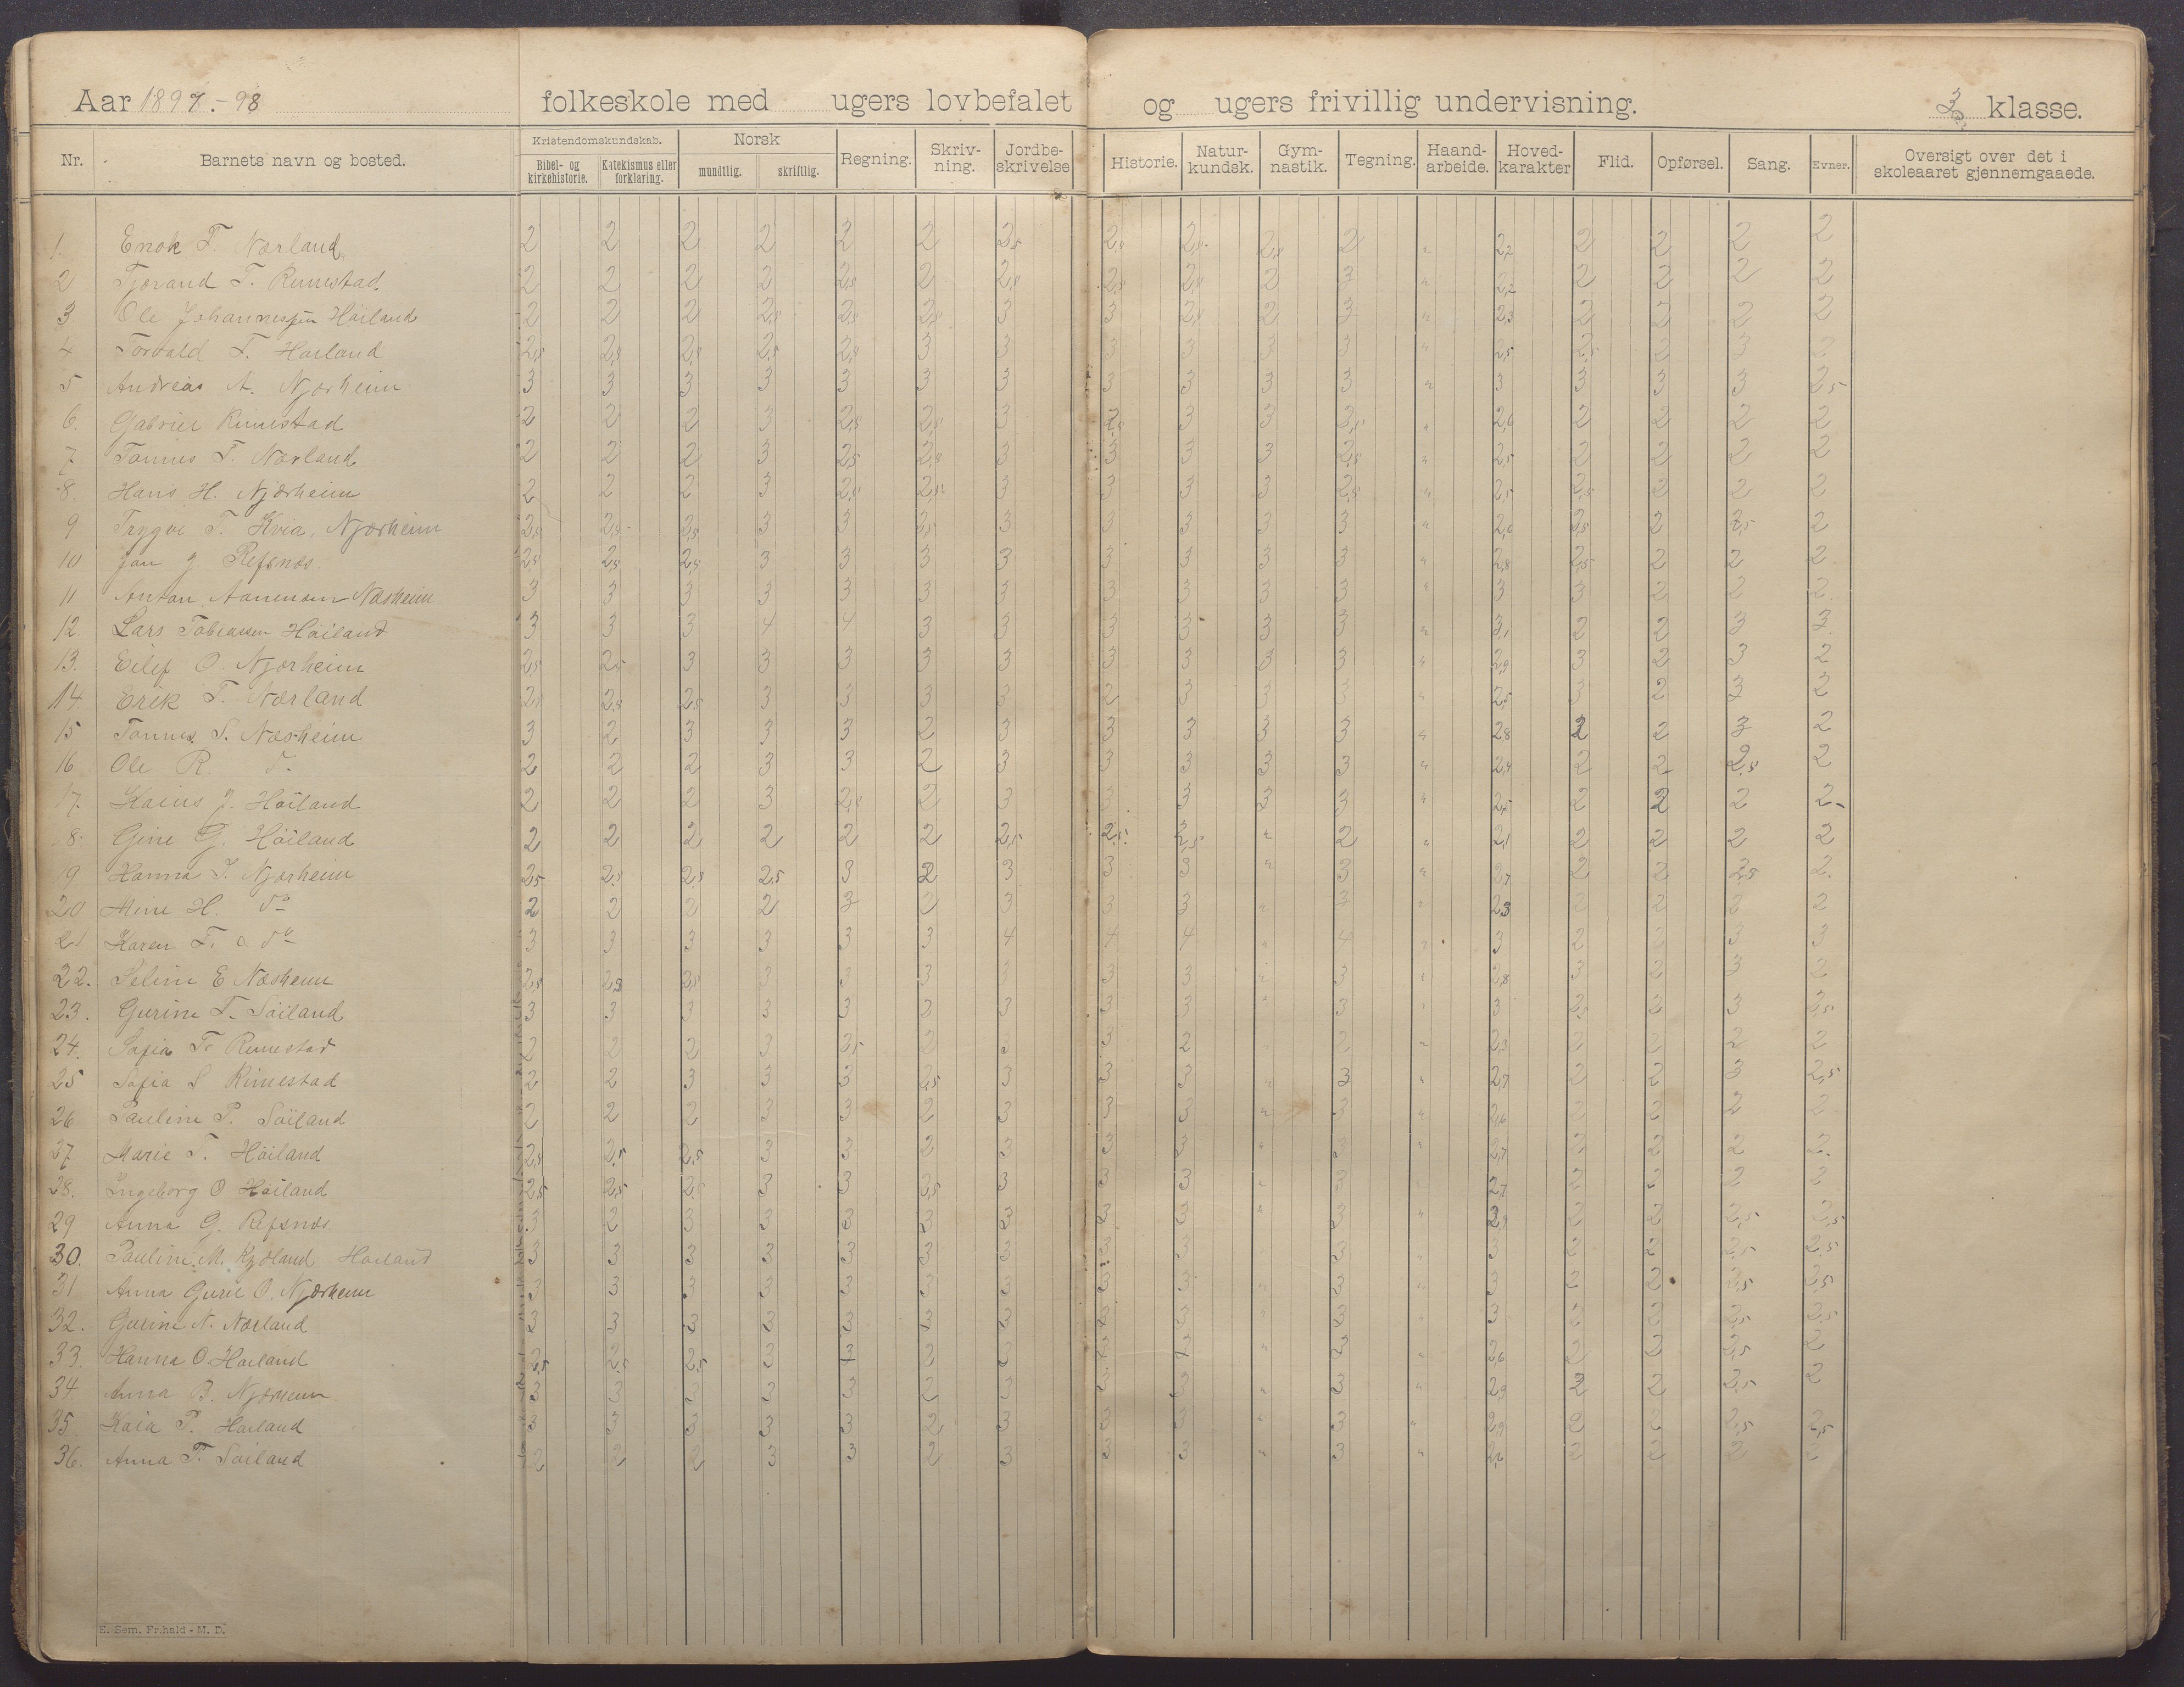 Aar 1897.-98 folkeskole med ugers lovbefalet og ugers frivillig undervisning. 3 klasse.
Nr. Barnets navn og bosted. Kristendomskundskab. Bibel- og kirkehistorie. Katekismus eller forklaring. Norsk mundtlig. skriftlig. Regning. Skriv-ning. Jordbe-skrivelse Historie. Natur-kundsk. Gym-nastik. Tegning. Haand-arbeide. Hoved-karakter Flid. Opførsel. Sang. Evner. Oversigt over det i skoleaaret gjennemgaaede.
1. Enok T. Nærland 2 2 2 2 2 2 2,5 2,5 2,5 2,5 2 " 2,2 2 2 2 2
2 Tjørand T. Rimestad. 2 2 2 2 2,5 2 2,5 2,5 2,5 2 3 " 2,2 2 2 2 2
3. Ole Johannessen Höiland 2 2 2 2,5 2,5 2,5 3 3 2,5 2 3 " 2,3 2 2 2 2
4 Torvald T. Höiland 2,5 2,5 2,5 2,5 2,5 3 3 3 3 3 3 " 2,5 2,5 2 3 2
5 Andreas A. Njærheim 3 3 3 3 3 3 3 3 3 3 3 " 3 3 3 3 2,5
6. Gabriel Rimestad 2 2 2 3 2,5 2,5 3 2,5 3 3 2,5 " 2,6 2 2 2 2
7 Tønnes T. Nærland 2 2 2 3 2,5 2,5 3 3 3 3 2,5 " 2,5 2 2 2 2
8. Hans H. Njærheim 2 2 2 3 2,5 2,5 3 3 3 3 2,5 " 2,5 2,5 2 2 2
9 Trygve T. Hvia, Njærheim 2,5 2,5 2,5 3 3 2,5 3 3 3 3 3 " 2,6 2,5 2 2,5 2
10 Jan J. Refsnæs. 2,5 2,5 2,5 3 3 3 3 3 3 3 3 " 2,8 2,5 2 2 2
11 Anton Aanensen Næsheim 3 3 3 3 3 3 3 3 3 3 3 " 3 3 2 2 2
12. Lars Tobiassen Höiland 3 3 3 4 4 3 3 3 3 3 3 " 3,1 2 2 3 3
13. Eilef O. Njærheim 2,5 2,5 3 3 3 3 3 3 3 3 3 " 2,9 3 2 3 2
14. Erik T. Nærland 2,5 2,5 2,5 3 3 3 3 2 3 3 3 " 2,5 3 2 3 2
15 Tønnes S. Næsheim 3 2 3 3 3 2 3 3 3 3 3 " 2,8 2 2 3 2
16 Ole R. d. 2 2 2 3 3 2 3 3 3 3 3 " 2,4 2 2 2,5 2
17. Kaius J. Höiland 2 2 2 3 2,5 2 3 3 3 3 3 " 2,5 2 2 2 2
18. Gine G. Höiland 2 2 2 2 2 2 2,5 2,5 2,5 " 2 " 2,1 2 2 2 2
19 Hanna J. Njærheim 2,5 2,5 2,5 2,5 3 2 3 3 3 " 3 " 2,7 2 2 2,5 2
20 Mine H. do 2 2 2 2 3 2 3 3 3 " 3 " 2,3 2 2 2 2
21 Karen T. do 3 3 3 3 3 3 4 4 4 " 4 " 3 2 2 3 3
22. Seline E Næsheim 2,5 2,5 2,5 3 3 3 3 3 3 " 3 " 2,8 3 2 3 2
23. Gurine T. Söiland 3 3 3 3 3 2 3 3 3 " 3 " 3 2,5 2 3 2,5
24. Sofia T. Rimestad 2 2 2 3 2,5 2 2 3 2 " 2 " 2,3 2 2 2 2
25 Sofia S Rimestad 2 2 3 3 3 2,5 3 3 3 " 3 " 2,7 2 2 3 2,5
26 Pauline P. Söiland 2 2 2 3 3 2 3 3 3 " 3 " 2,6 2 2 2 2
27 Marie T. Höiland 2,5 2,5 2,5 3 3 2 3 3 3 " 3 " 2,7 2 2 2 2
28. Ingeborg O Höiland 2,5 2,5 2,5 3 3 2,5 3 3 3 " 3 " 2,7 2 2 2 2
29 Anna G. Refsnæs. 3 2 3 3 3 3 3 3 3 " 3 " 2,9 2 2 2,5 2,5
30. Pauline M. Kydland Höiland 3 3 3 3 3 3 3 3 3 " 3 " 3 2 2 2,5 2,5
31 Anna Gurie O. Njærheim 3 3 3 3 3 3 3 3 3 " 3 " 3 2 2 2,5 2,5
32. Gurine N. Nærland 3 3 3 3 3 3 3 3 3 " 3 " 3 2 2 2,5 2,5
33. Hanna O. Höiland 2,5 2,5 2,5 3 3 2 2 3 3 " 3 " 2,6 2 2 2,5 2
34 Anna B. Njærheim 3 3 3 3 3 2 3 3 3 " 3 " 2,9 2 2 2,5 2
35. Kaia P. Höiland 3 3 3 3 3 2,5 3 3 3 " 3 " 2,9 2 2 2,5 2,5
36. Anna T. Söiland 2 2 2 3 3 2 3 3 3 " 3 " 2,6 2 2 2 2
E. Sem, Fr.hald - M. D.